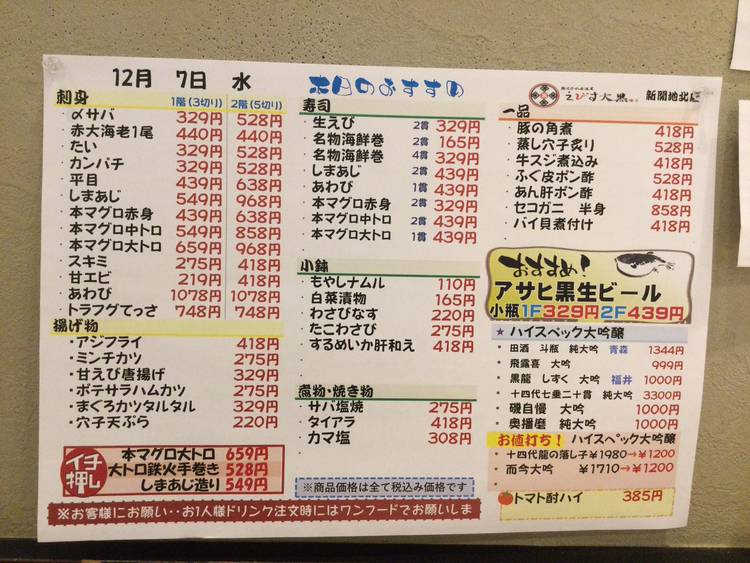 12月 7日 水
本日のおすすめ
えびす大黒
新開地北店
刺身 1階(3切り) 2階(5切り)
・〆サバ 329円 528円
・赤大海老1尾 440円 440円
・たい 329円 528円
・カンパチ 329円 528円
・平目 439円 638円
・しまあじ 549円 968円
・本マグロ赤身 439円 638円
・本マグロ中トロ 549円 858円
・本マグロ大トロ 659円 968円
・スキミ 275円 418円
・甘エビ 219円 418円
・あわび 1078円 1078円
・トラフグてっさ 748円 748円
揚げ物
・アジフライ 418円
・ミンチカツ 275円
・甘えび唐揚げ 329円
・ポテサラハムカツ 275円
・まぐろカツタルタル 329円
・穴子天ぷら 220円
イチ押し
本マグロ大トロ 659円
大トロ鉄火手巻き 528円
しまあじ造り 549円
寿司
・生えび 2貫 329円
・名物海鮮巻 2貫 165円
・名物海鮮巻 4貫 329円
・しまあじ 2貫 439円
・あわび 1貫 439円
・本マグロ赤身 2貫 439円
・本マグロ中トロ 2貫 439円
・本マグロ大トロ 1貫 439円
小鉢
・もやしナムル 110円
・白菜漬物 165円
・わさびなす 220円
・たこわさび 275円
・するめいか肝和え 418円
煮物・焼き物
・サバ塩焼 275円
・タイアラ 418円
・カマ塩 308円
※商品価格は全て税込み価格です
一品
・豚の角煮 418円
・蒸し穴子炙り 528円
・牛スジ煮込み 418円
・ふぐ皮ポン酢 528円
・あん肝ポン酢 418円
・セコガニ 半身 858円
・バイ貝煮付け 418円
おすすめ!
アサヒ黒生ビール
小瓶 1F329円 2F439円
★ ハイスペック大吟醸
・田酒 斗瓶 純大吟 青森 1344円
・飛露喜 大吟 999円
・黒龍 しずく 大吟 福井 1000円
・十四代七垂二十貫 純大吟 3300円
・磯自慢 大吟 1000円
・奥播磨 純大吟 1000円
お値打ち! ハイスペック大吟醸
・十四代龍の落し子¥1980→¥1200
・而今大吟 ¥1710→¥1200
トマト酎ハイ 385円
※お客様にお願い‥お1人様ドリンク注文時にはワンフードでお願いしま